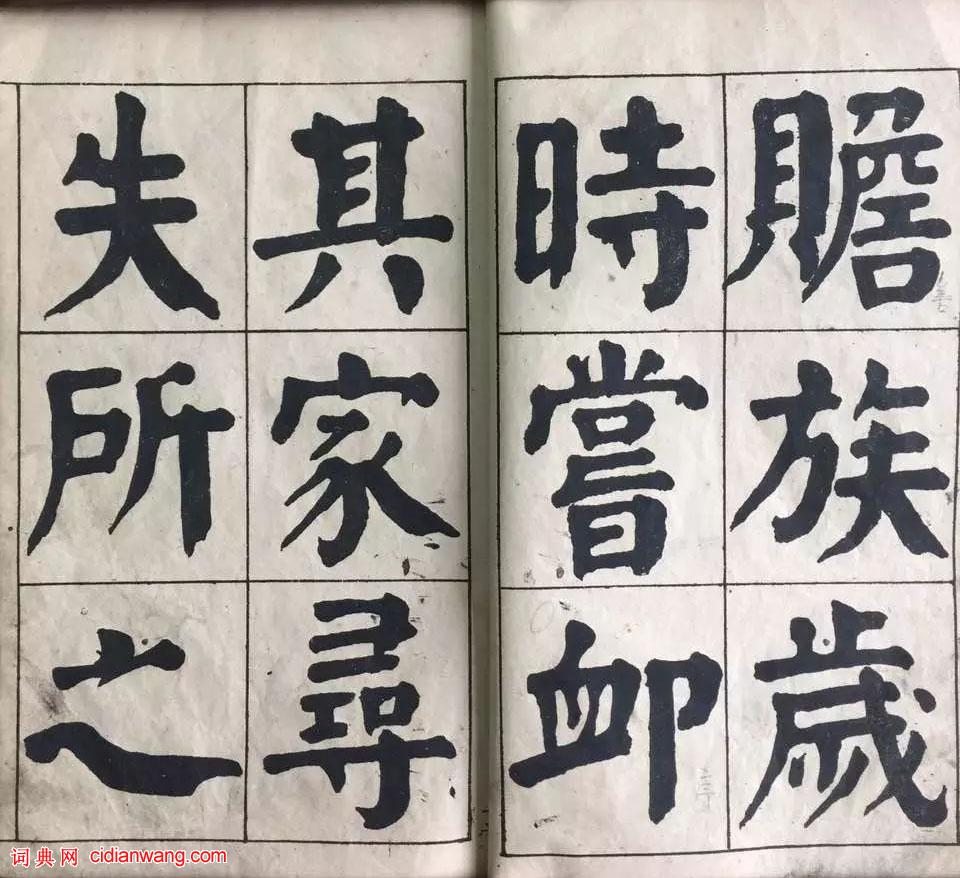 贍族歲
時嘗卹
其家尋
失所之
词典网 cidianwang.com